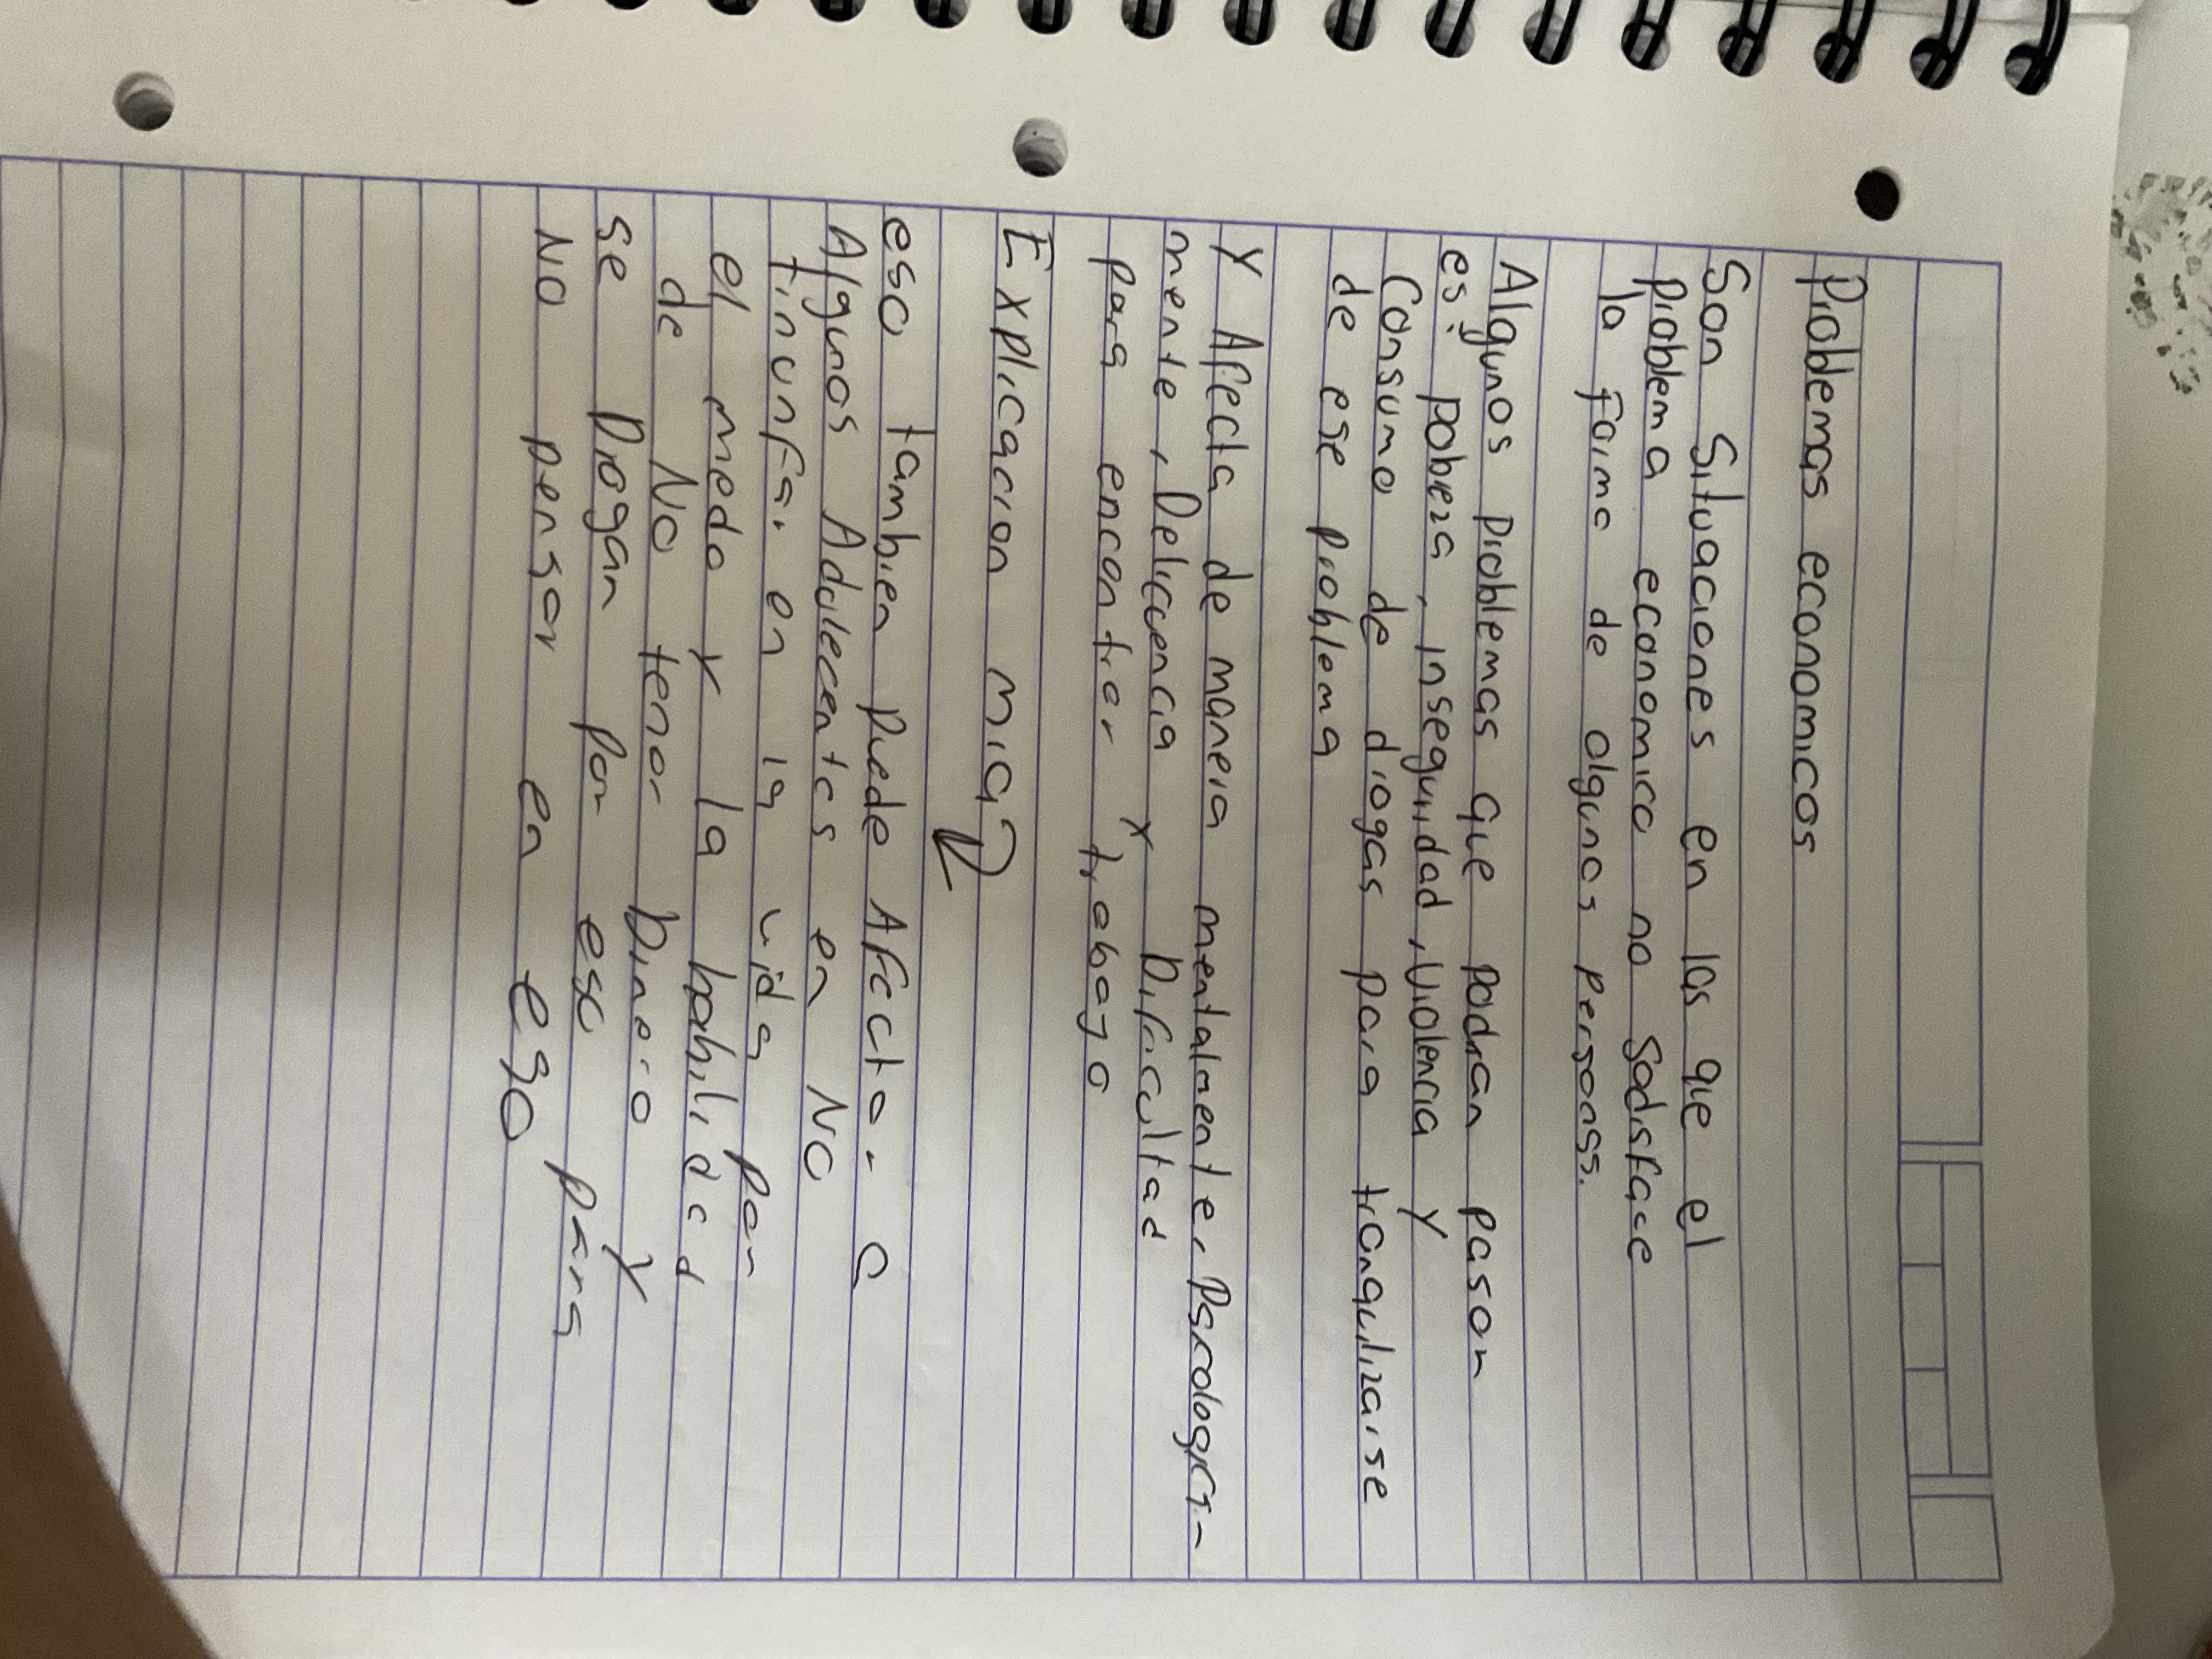 Problemas economicos
Son Situaciones en las que el
problema economico no Sadisface
la forma de algunas personas.
Algunos problemas que podrian pasar
es: pobreza, inseguridad, Violencia y
Consumo de drogas para tranquilizarse
de ese problema
Y Afecta de manera mentalmente, Psicologici-
mente, Delicuencia y Dificultad
para encontrar trabajo
Explicacion mia
eso tambien puede Afectar a
Algunos Adolecentes en No
triunfar en la vida por
el miedo y la habilidad
de No tener Dinero y
se Drogan por eso para
No pensar en eso